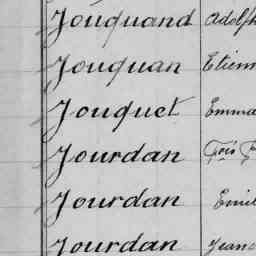 Jouquand Adolph
Jouquan Etienn
Jouquet Emma
Jourdan Fçois
Jourdan Emil
Jourdan Jeann